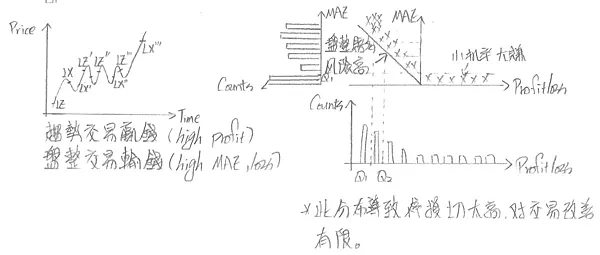 Price
LZ
LX
LZ'
LX'
LZ''
LX''
LZ'''
LX'''
Time
趨勢交易贏錢(high profit)
盤整交易輸錢(high MAE, loss)
MAE
Counts
Q1
MAE
盤整賠多
風險高
小机率大賺
Profit loss
Counts
Q1 Q2
Profit loss
*此分布導致停損切太高,对交易改善
有限。